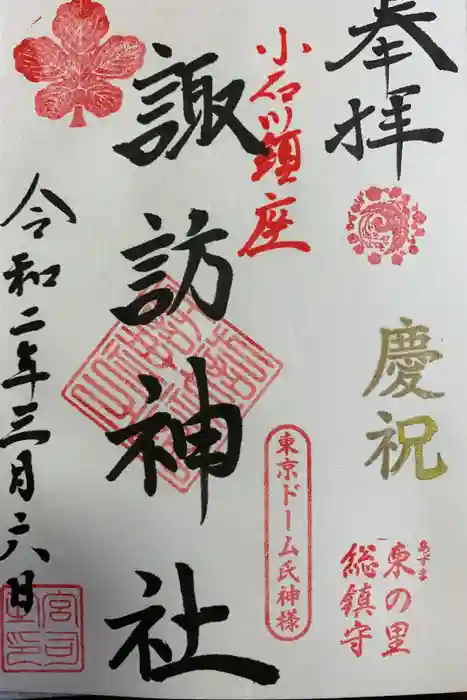 奉拝
慶祝
東の里
総鎮守
小石川鎮座
東京ドーム氏神様
諏訪神社
令和二年三月六日